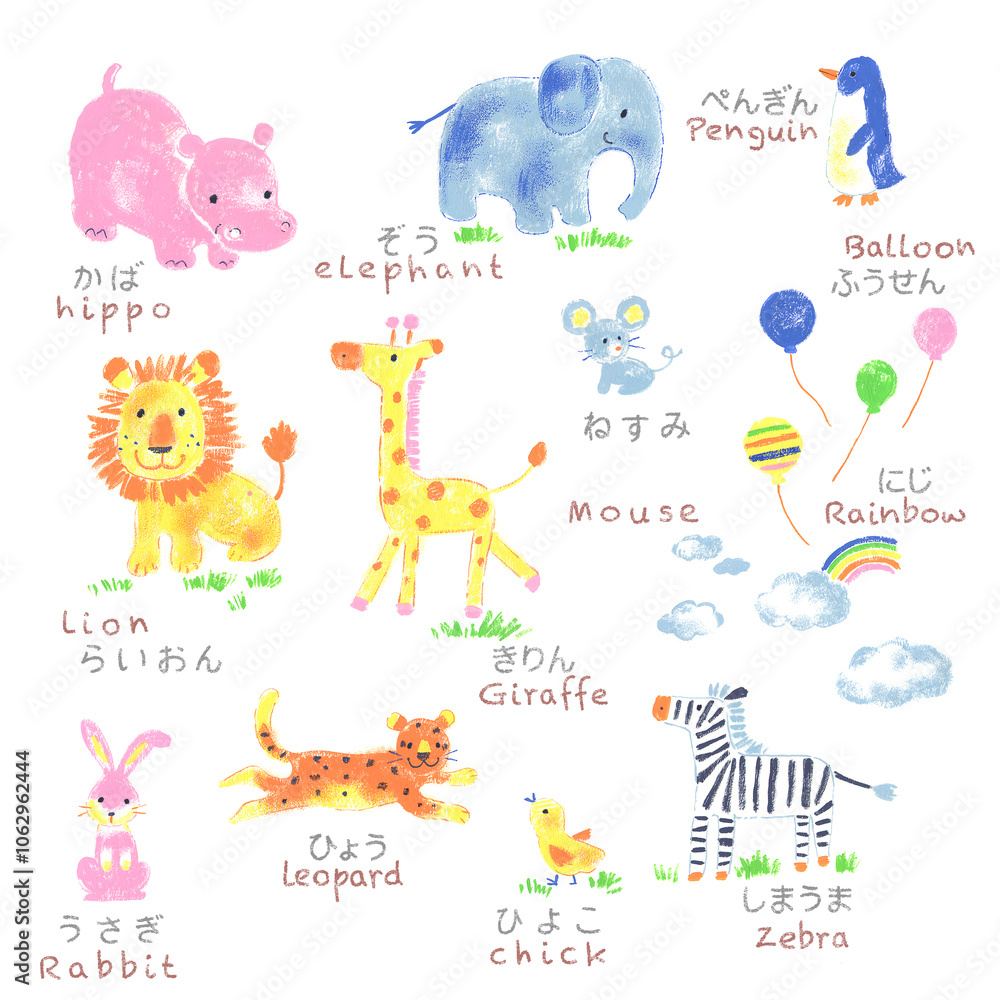 ぺんぎん
Penguin
ぞう
elephant
かば
hippo
Balloon
ふうせん
ねずみ
Mouse
にじ
Rainbow
Lion
らいおん
きりん
Giraffe
ひょう
Leopard
うさぎ
Rabbit
ひよこ
chick
しまうま
Zebra
Adobe Stock | #1062962444
Adobe Stock